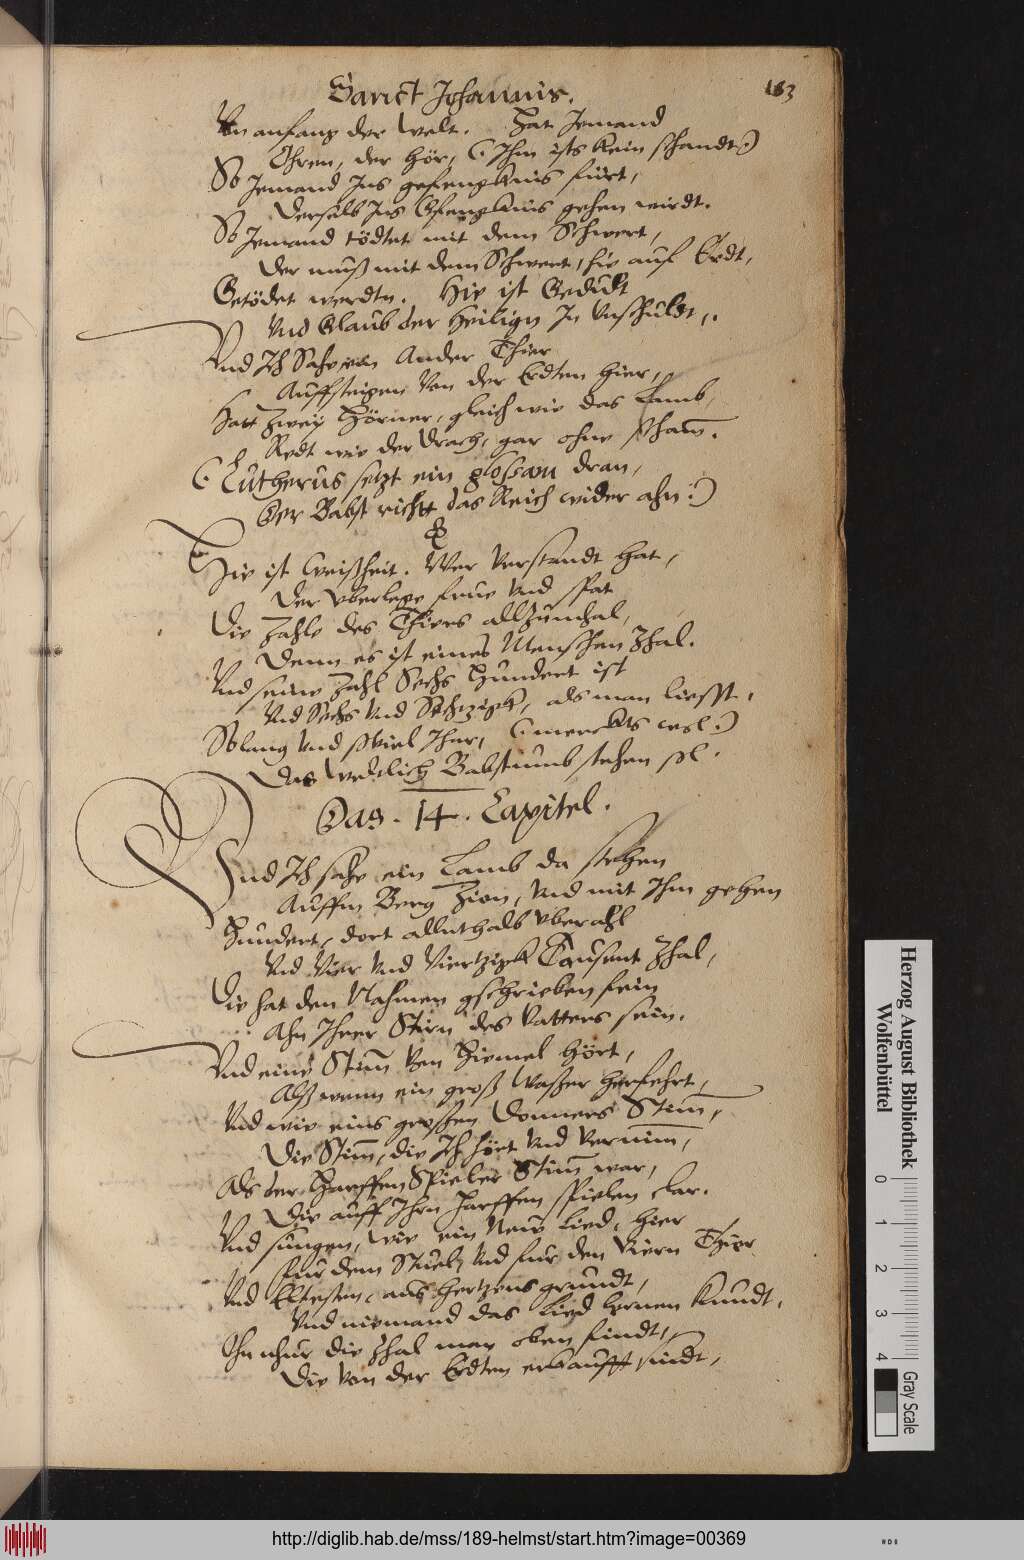 Sanct Johannis. 183
Von anfang der Welt. Hat Jemand
Ohren, der hör, (: Ihm ists kein schandt :)
So Jemand Ins gefengknis fürt,
Derselb Ins Gfengknis gehen wirdt.
So Jemand tödtet mit dem Schwert,
Der muß mit dem Schwert, hie auf Erdt,
Getödet werdtn. Hie ist Gedult
Vnd Glaub der Heilign In Vnschuldt.
Vnd Ich Sahe ein Ander Thier
Auffsteigen Von der Erdten hier,
Hatt Zwey Hörner, gleich wie das Lamb,
Redt wie der Drach, gar ohne scham̄.
(: Lutherus setzt ein glossam dran,
Der Babst richtt das Reich wider ahn :)
Hie ist Weißheit. Wer Verstandt hat,
Der vberlege frue Vnd spat
Die Zahle des Thiers allzumhal,
Denn es ist eines Menschen Zhal.
Vnd seine Zahl Sechs Hundert ist
Vnd Sechs Vnd Sechzigk, als man liesst.
So lang Vnd souiel Jhar, (: merckts wol :)
Das Weltlich Babstumb stehen sol.
Das .14. Capitel.
Vnd Ich sahe ein Lamb da stehen
Auffm Berg Zion, Vnd mit Ihm gehen
Hundert, dort allnthalb vberahl
Vnd Vier Vnd Viertzigk Tausent Zhal,
Die hat den Nahmen gschrieben fein
Ahn Ihrer Stirn des Vatters sein.
Vnd eine Stim̄ Von Himel hört,
Alß wenn ein groß Waßer herfehrt,
Vnd wie eins großen Donners Stim̄,
Die Stim̄, die Ich hört Vnd Vernim̄,
Als der Harffen Spieler Stim̄ war,
Die auff Ihrn Harffen spielen clar.
Vnd sungen, wie ein Neuw Lied, hier
fur dem Stuel, Vnd fur den Viern Thier
Vnd Eltesten, aus hertzens grundt,
Vnd niemand das Lied lernen kundt,
Ohn nhur die Zhal man oben findt,
Die Von der Erdten erkaufft sindt,
Herzog August Bibliothek
Wolfenbüttel
0 1 2 3 4
Gray Scale
http://diglib.hab.de/mss/189-helmst/start.htm?image=00369